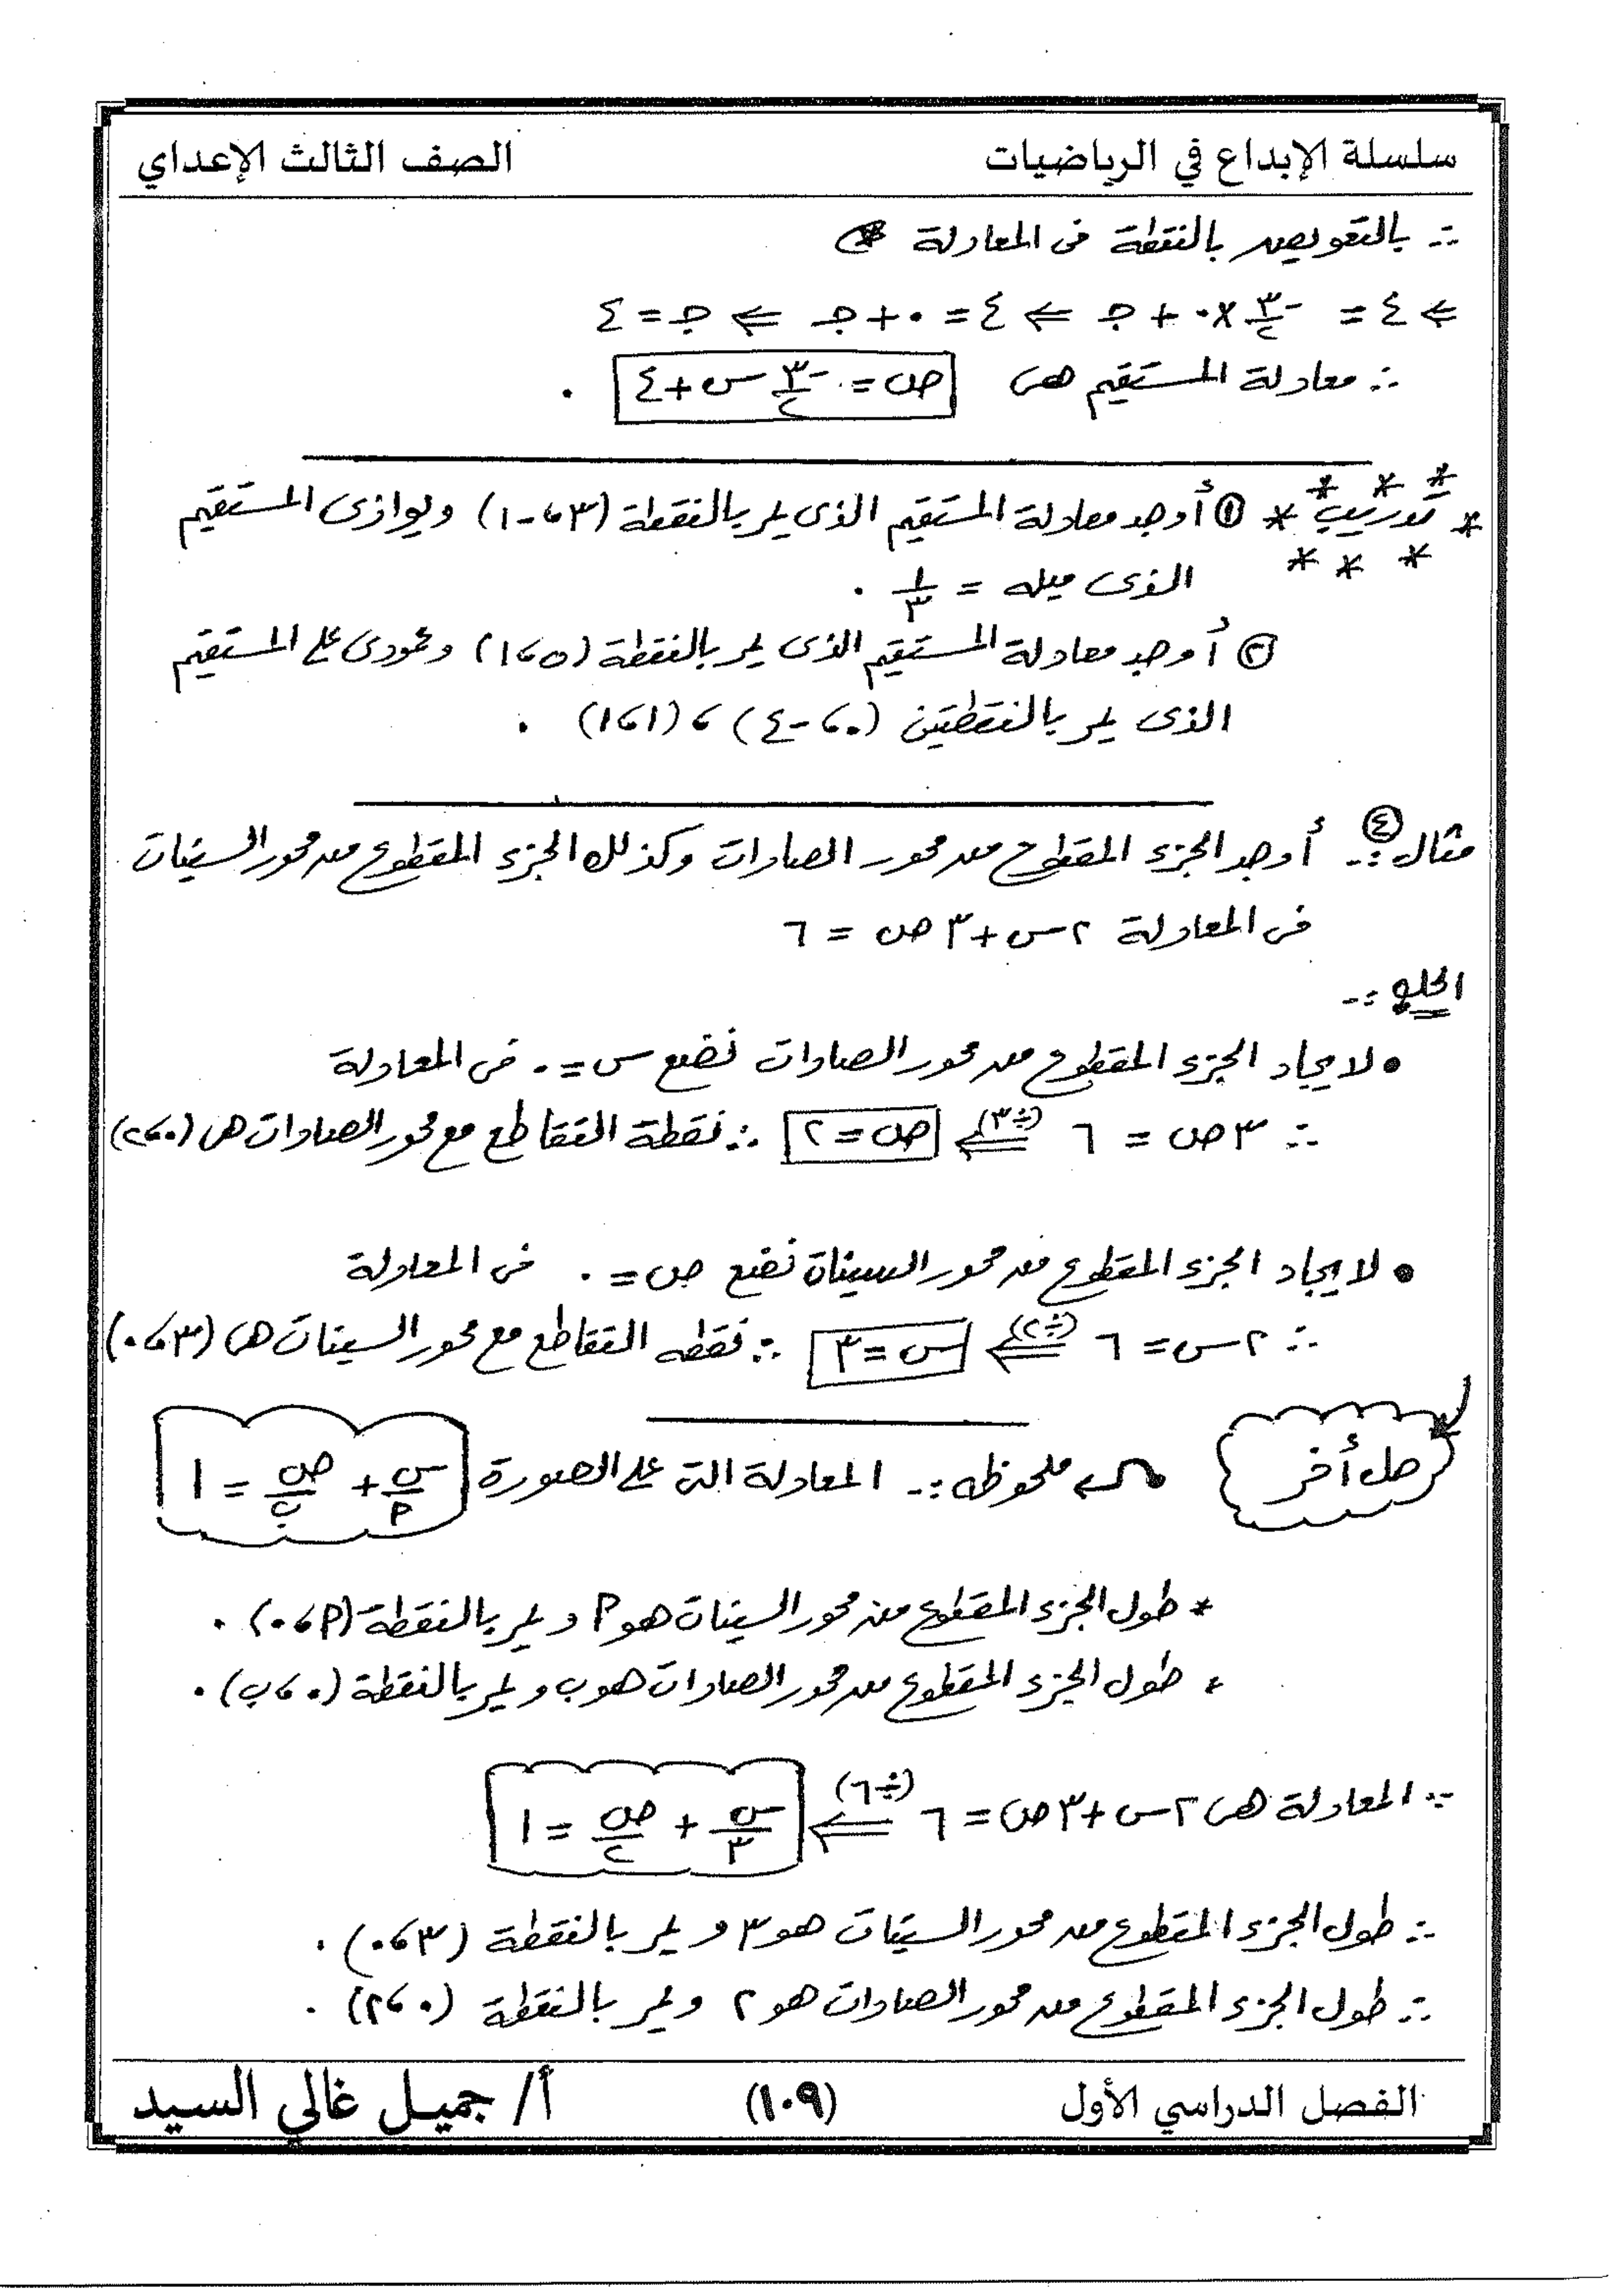 سلسلة الإبداع في الرياضيات
الصف الثالث الإعداي
∴ بالتعويض بالنقطة فى المعادلة
⇐ ٤ = -٣/٢ × ٠ + جـ ⇐ ٤ = ٠ + جـ ⇐ جـ = ٤
∴ معادلة المستقيم هى ص = -٣/٢ س + ٤ .
* تدريب * ① أوجد معادلة المستقيم الذى يمر بالنقطة (٣، -١) ويوازى المستقيم
الذى ميله = ١/٣ .
② أوجد معادلة المستقيم الذى يمر بالنقطة (٥، ١) وعمودى على المستقيم
الذى يمر بالنقطتين (٠، -٤) ، (١، ١) .
مثال ④ :- أوجد الجزء المقطوع من محور الصادات وكذلك الجزء المقطوع من محور السينات
فى المعادلة ٢س + ٣ص = ٦
الحل :-
• لايجاد الجزء المقطوع من محور الصادات نضع س = ٠ فى المعادلة
∴ ٣ص = ٦ ⇐ (÷٣) ص = ٢ ∴ نقطة التقاطع مع محور الصادات هى (٠، ٢)
• لايجاد الجزء المقطوع من محور السينات نضع ص = ٠ فى المعادلة
∴ ٢س = ٦ ⇐ (÷٢) س = ٣ ∴ نقطه التقاطع مع محور السينات هى (٣، ٠)
حل أخر
ملحوظه :- المعادلة التى على الصورة س/أ + ص/ب = ١
* طول الجزء المقطوع من محور السينات هو أ ويمر بالنقطة (أ، ٠) .
* طول الجزء المقطوع من محور الصادات هو ب ويمر بالنقطة (٠، ب) .
∵ المعادلة هى ٢س + ٣ص = ٦ ⇐ (÷٦) س/٣ + ص/٢ = ١
∴ طول الجزء المقطوع من محور السينات هو ٣ ويمر بالنقطة (٣، ٠) .
∴ طول الجزء المقطوع من محور الصادات هو ٢ ويمر بالنقطة (٠، ٢) .
الفصل الدراسي الأول
(١٠٩)
أ/ جميل غالي السيد